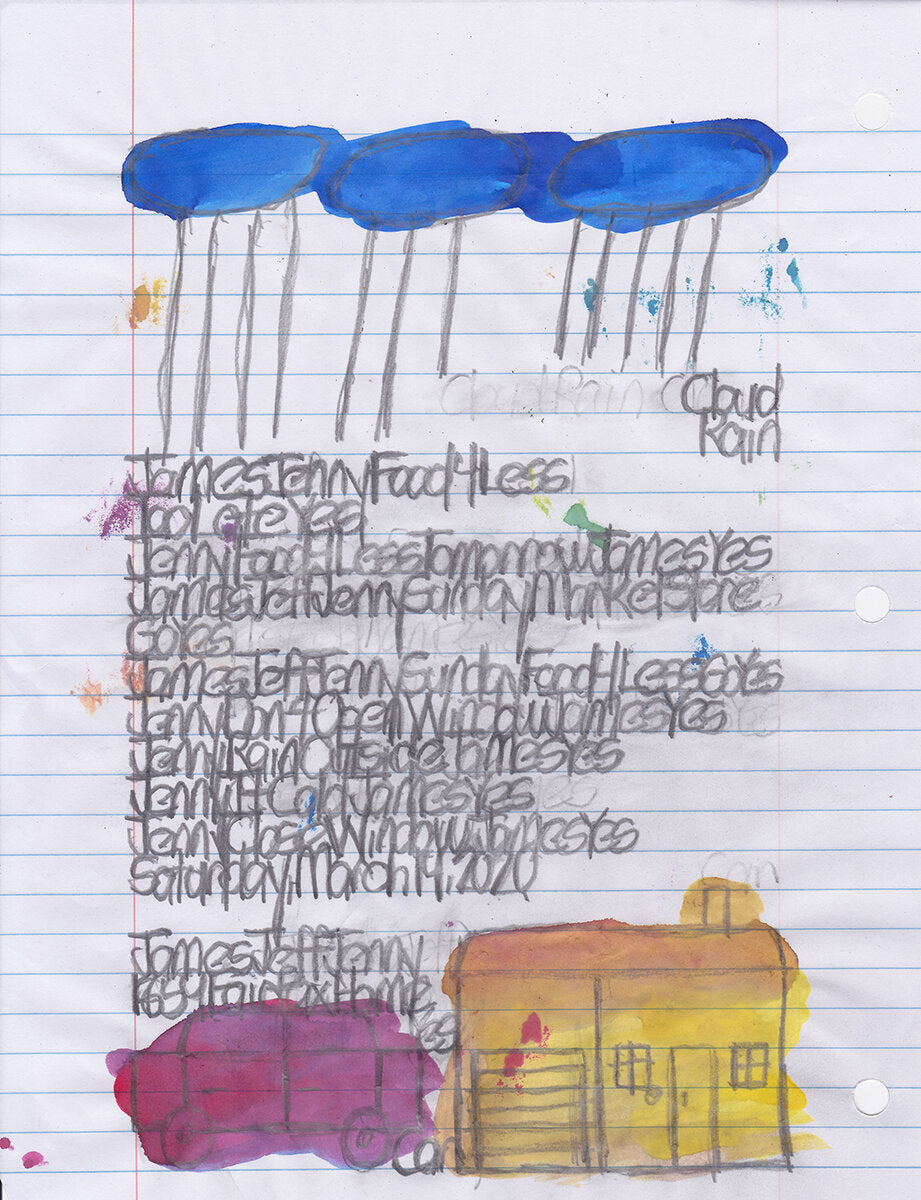 Cloud
Rain
James Jenny Food 4 Less
Too Late Yes
Jenny Food 4 Less Tomorrow James Yes
James Jeff Jenny Sunday Market Store
Go Yes
James Jeff Jenny Sunday Food 4 Less Go Yes
Jenny Don't Open Window James Yes
Jenny Rain Outside James Yes
Jenny It Cold James Yes
Jenny Close Window James Yes
Saturday, March 14, 2020
James Jeff Jenny
1659 Fairfax Home
Yes
Car